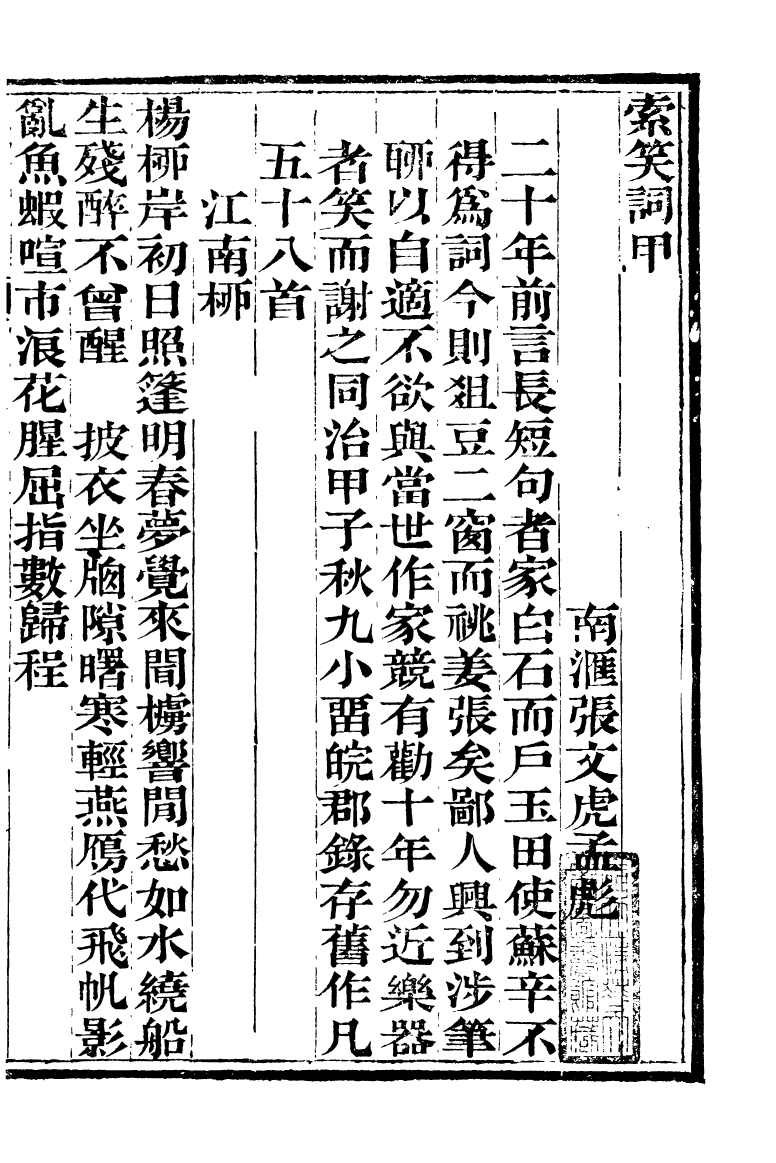 索笑詞甲
南滙張文虎孟彪
二十年前言長短句者家白石而戶玉田使蘇辛不
得爲詞今則俎豆二窗而祧姜張矣鄙人興到涉筆
聊以自適不欲與當世作家競有勸十年勿近樂器
者笑而謝之同治甲子秋九小畱皖郡錄存舊作凡
五十八首
江南桺
楊桺岸初日照篷明春夢覺來聞櫓響閒愁如水繞船
生殘醉不曾醒　披衣坐牕隙曙寒輕燕鴈代飛帆影
亂魚蝦喧市浪花腥屈指數歸程